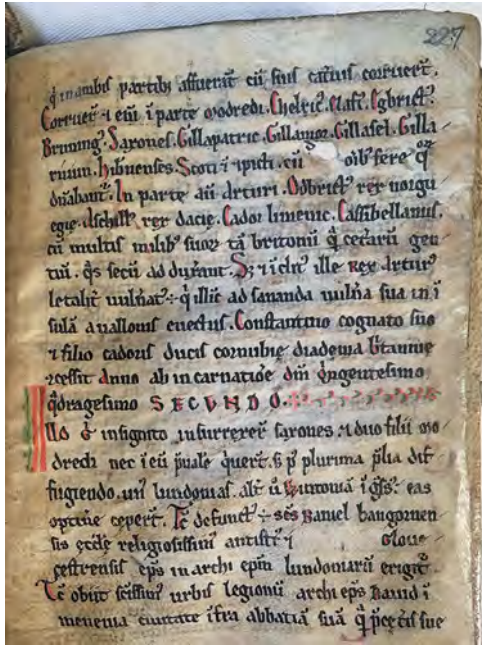 227
q' in ambis partibꝫ affuerāt cū suis catuis corruerr̄.
Corruer̄ ⁊ eni ī parte modredi. Chelric. Elafi. Egbrict᷒.
Bruning᷒. Saxones. Gillapatric. Gillamor. Gillasel. Gilla
rnum. hibnenses. Scoti ⁊ picti. cū oib᷒ fere q̄s
dn̄abant᷒. In parte aū Arturi. Odbrict᷒ rex norgu
egie. Aschill᷒ rex dacie. Cador limenic. Cassibellanus.
cū multis milib᷒ suoꝝ tā britonū q̄ ceteraꝝ gen
tiū. q̄s secū adduxant. Sꝫ ⁊ iclit᷒ ille Rex Artur᷒
letalit̄ uulnat᷒ ÷ q' illic ad sananda uulna sua in ī
sulā auallonis euectus. Constantino cognato suo
⁊ filio cadoris ducis cornubie diadema bͥtannie
ꝯcessit Anno ab incarnatiōe dn̄i q̄ngentesimo
q̄dragesimo SECUNDO.
Illo g̊ insignito insurrexer̄ saxones ⁊ duo filii mo
dredi nec ī eū p̄uale q̄uert̄. sꝫ p᷒ plurima p̄lia dif
fugiendo. un᷒ lundonias. alt̄ ū Wintoniā īgͥss᷒. eas
optiīe ceper̄t. Tc̄ defunct᷒ ÷ scs̄ Daniel bangornen
sis eccl̄e religiosissim᷒ antistes ⁊ gloue
cestrensis ep̄s in archi ep̄m lundoniarū erigit᷒.
Tc̄ obiit sc̄issim᷒ urbis legionū archi ep̄s Dauid ī
meneuia ciuitate īfra abbatiā suā q̄ p̄ cet̄is sue